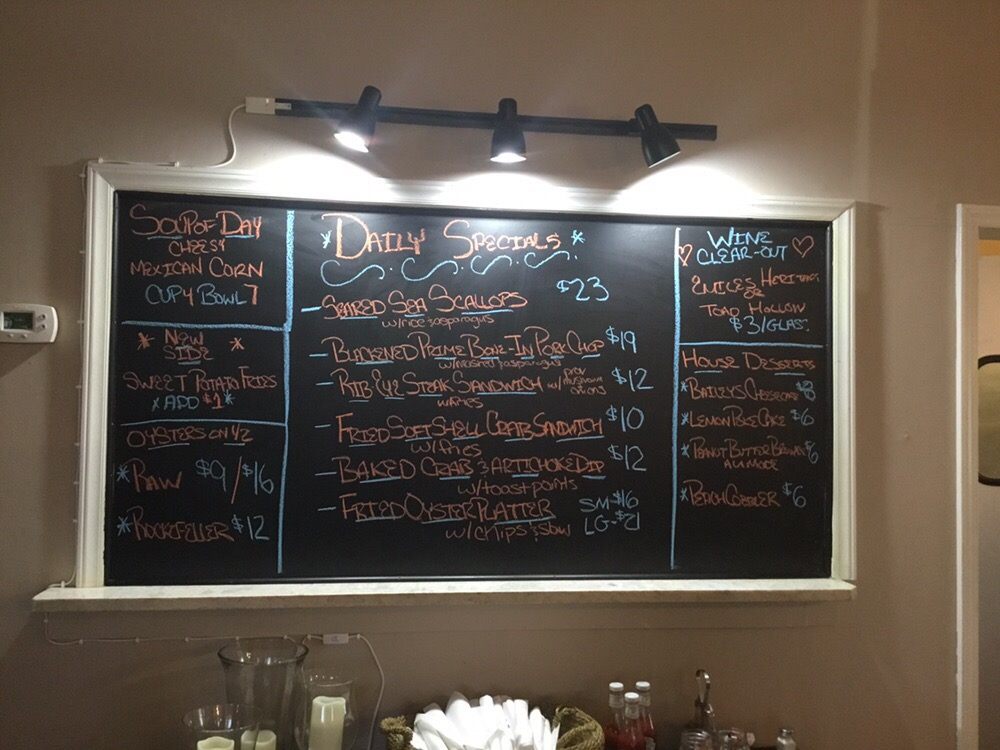 SOUP OF DAY
CHEESY
MEXICAN CORN
CUP 4 BOWL 7
* NEW *
SIDE
SWEET POTATO FRIES
*ADD $1*
OYSTERS ON 1/2
*RAW $9/$16
*ROCKEFELLER $12
*DAILY SPECIALS*
- SEARED SEA SCALLOPS $23
w/rice & asparagus
- BLACKENED PRIME BONE-IN PORK CHOP $19
w/mashed & asparagus
- RIB EYE STEAK SANDWICH w/ prov mushroom onions $12
w/fries
- FRIED SOFT SHELL CRAB SANDWICH $10
w/fries
- BAKED CRAB & ARTICHOKE DIP $12
w/toast points
- FRIED OYSTER PLATTER SM-$16
w/chips & slaw LG-$21
WINE
CLEAR-OUT
OR
TOAD HOLLOW
$3/GLASS
HOUSE DESSERTS
*BAILEYS CHEESECAKE
*LEMON POKE CAKE $6
*PEANUT BUTTER BROWNIE
ALA MODE
*PEACH COBBLER $6